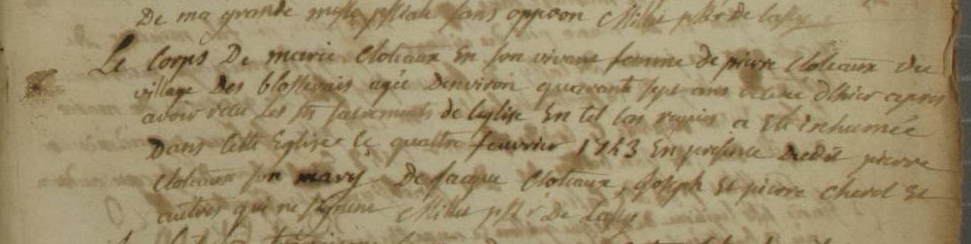 De ma grande messe pstale sans oppoon Millet pstr De Lassy
Le Corps De marie Cloteaux En son vivant femme de pierre Cloteaux du
village Des blossevais agée Denviron quarante sept ans decedée d'hier apres
avoir recu Les sts sacrements de l'eglise En tel cas requis a été inhumée
Dans cette Eglise le quattre feuvrier 1743 En presence dudit pierre
Cloteaux son mary De Jacque Cloteaux, Joseph Et pierre cherel Et
autres qui ne signent Millet pstr De Lassy